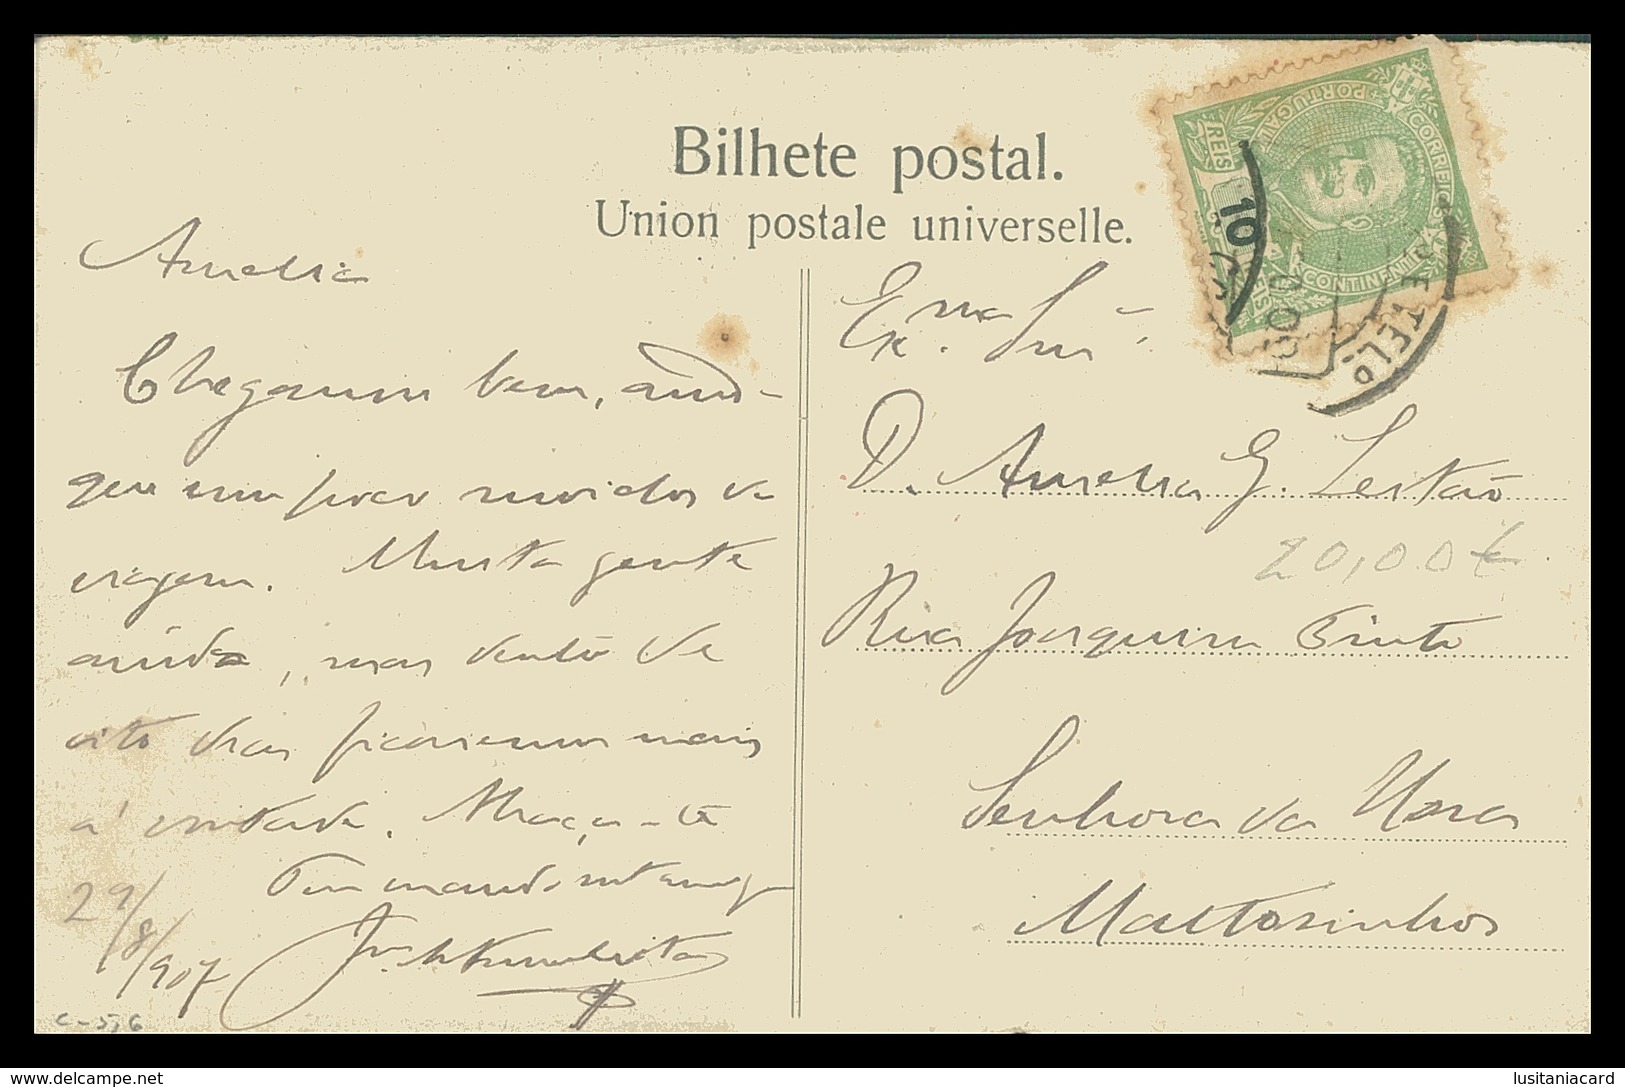 Bilhete postal.
Union postale universelle.
PORTUGAL
CORREIOS
REIS
10
CONTINENTE
Amelia
Chegamos bem, aind-
que um poco moidos da
viagem. Muita gente
ainda, mas dentro de
oito dias ficaremos mais
á vontade. Abraça-te
29/8/907
c-5,6
Exma Snrª
D. Amelia G. Leitão
20,00€
Rua Joaquim Pinto
Senhora da Hora
Mattosinhos
www.delcampe.net
lusitaniacard